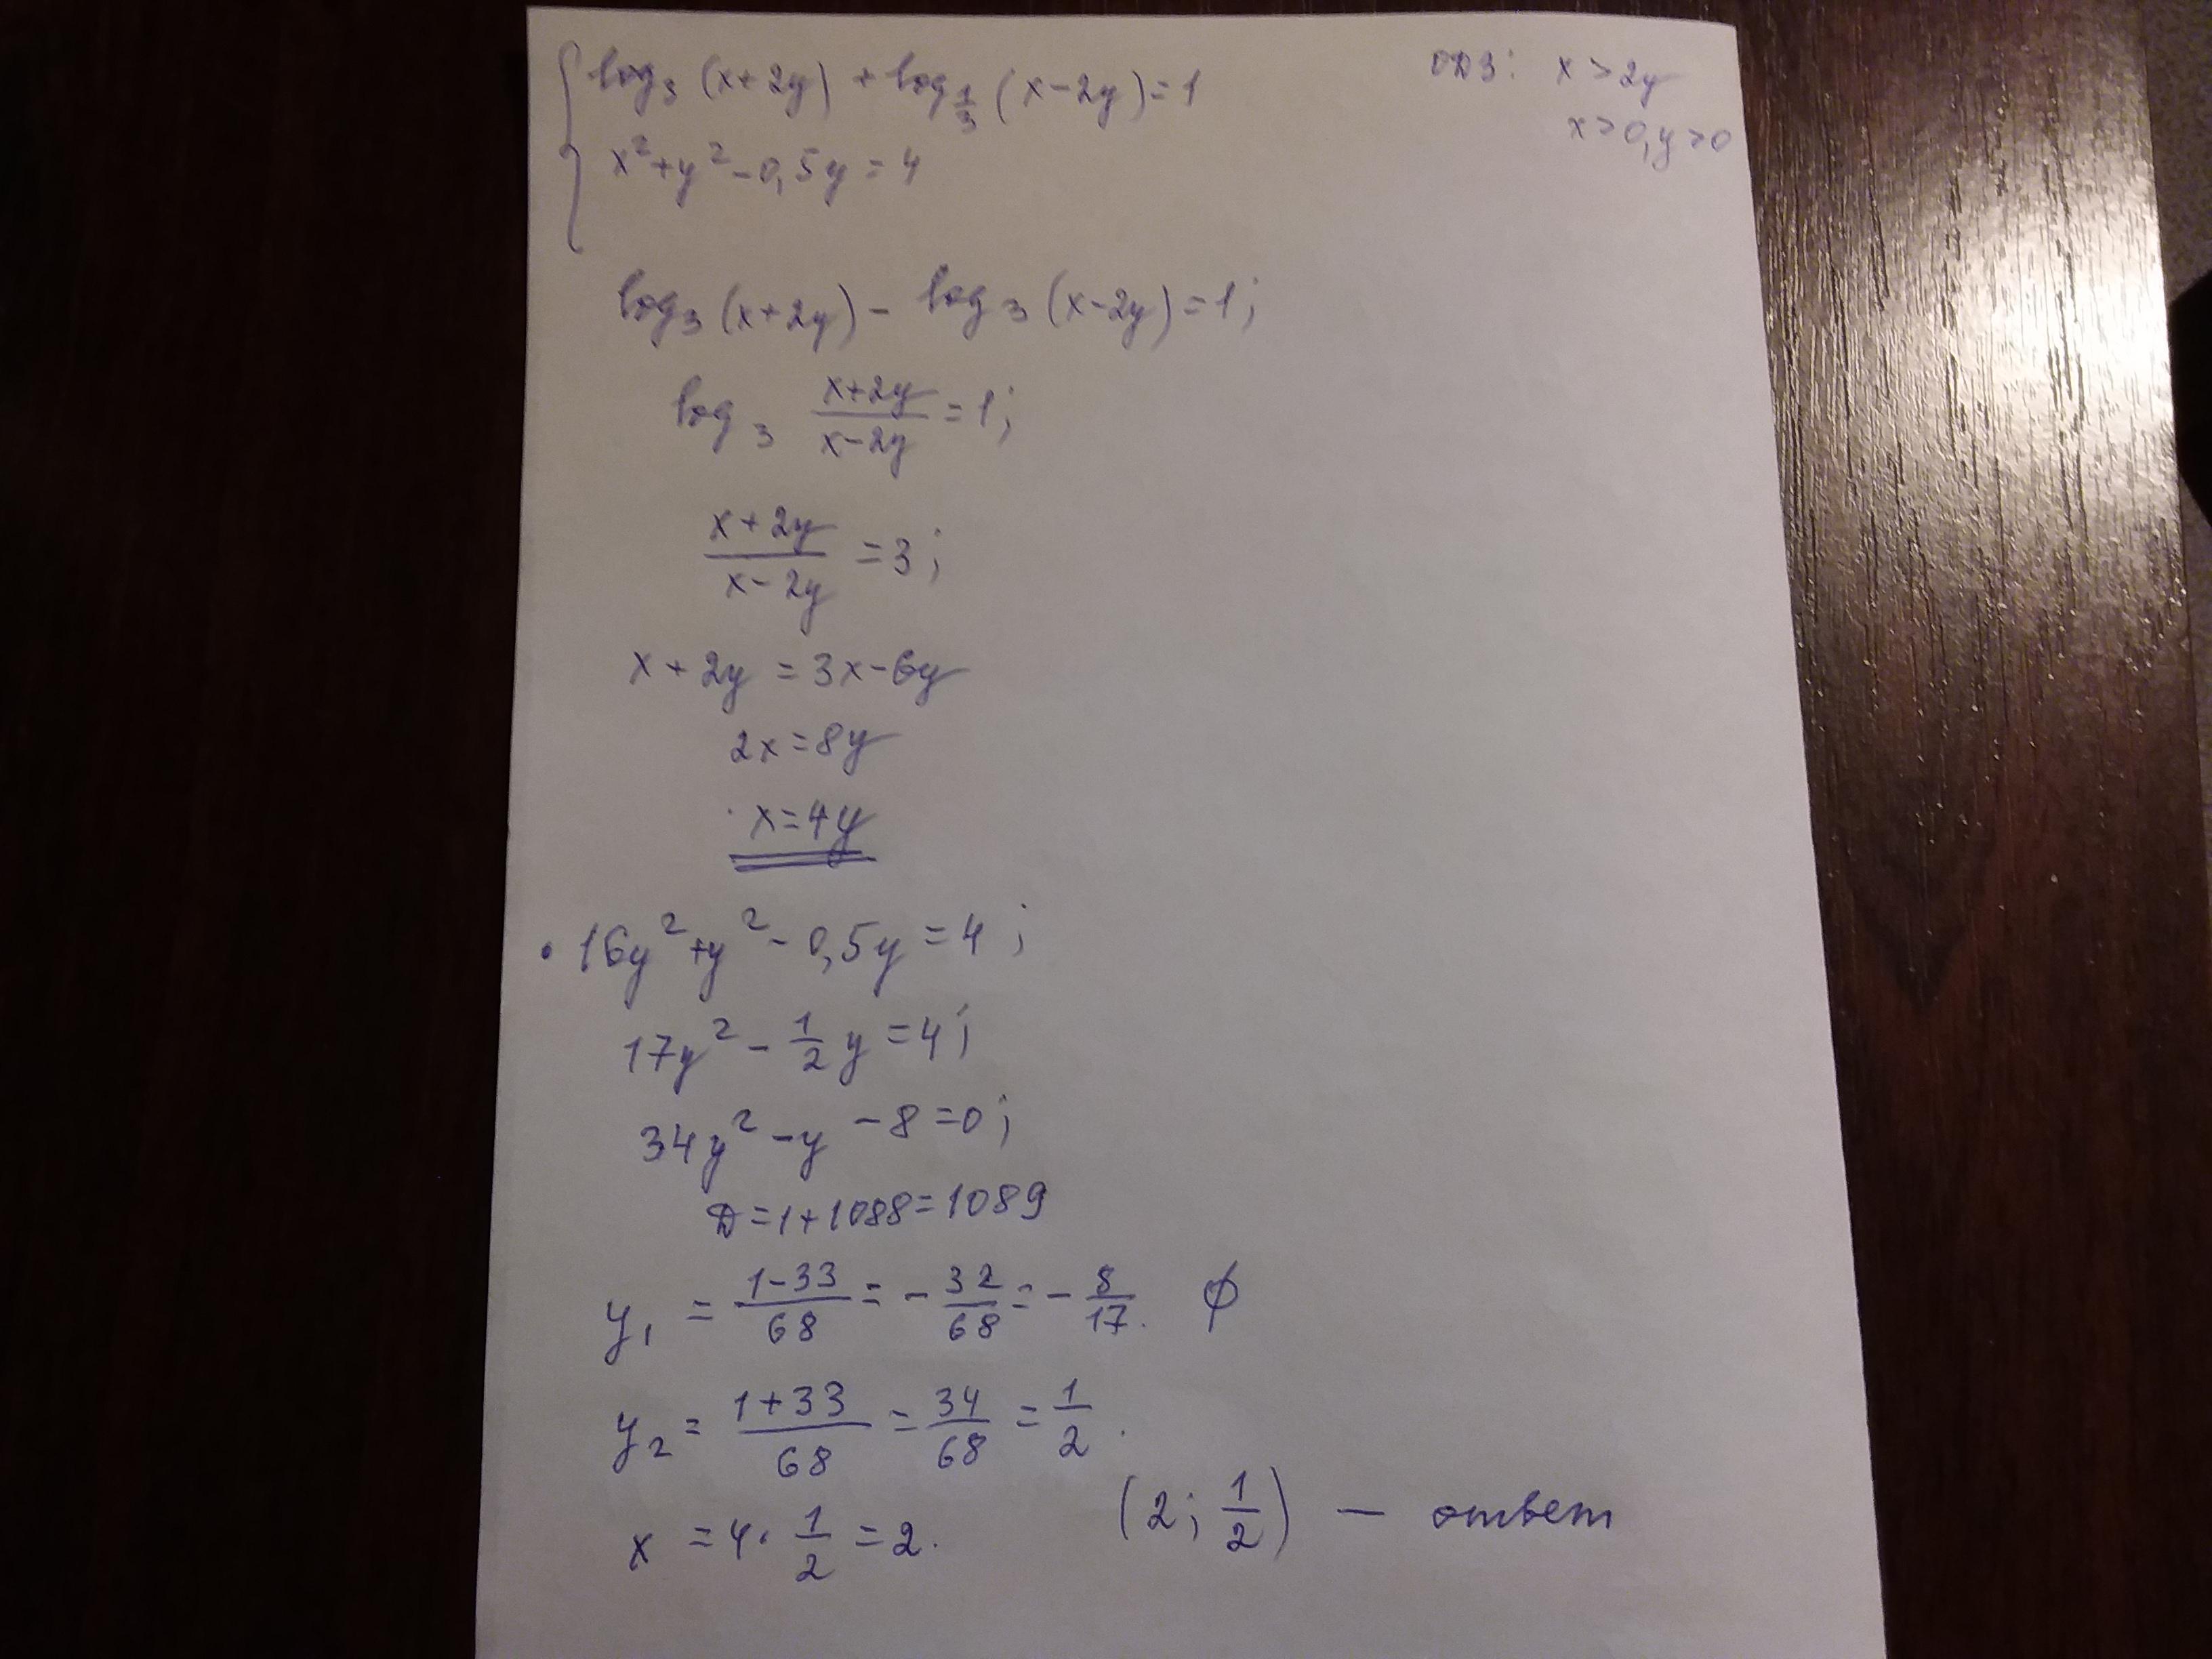 log₃(x+2y) + log_{1/3}(x-2y)=1
x²+y²-0,5y=4
ОДЗ: x>2y
x>0, y>0
log₃(x+2y) - log₃(x-2y)=1;
log₃ (x+2y)/(x-2y) =1;
(x+2y)/(x-2y) =3;
x+2y=3x-6y
2x=8y
x=4y
• 16y²+y²-0,5y=4;
17y²-1/2 y=4;
34y²-y-8=0;
D=1+1088=1089
y₁ = (1-33)/68 = -32/68 = -8/17. ∅
y₂ = (1+33)/68 = 34/68 = 1/2.
x = 4·1/2 = 2.
(2; 1/2) — ответ